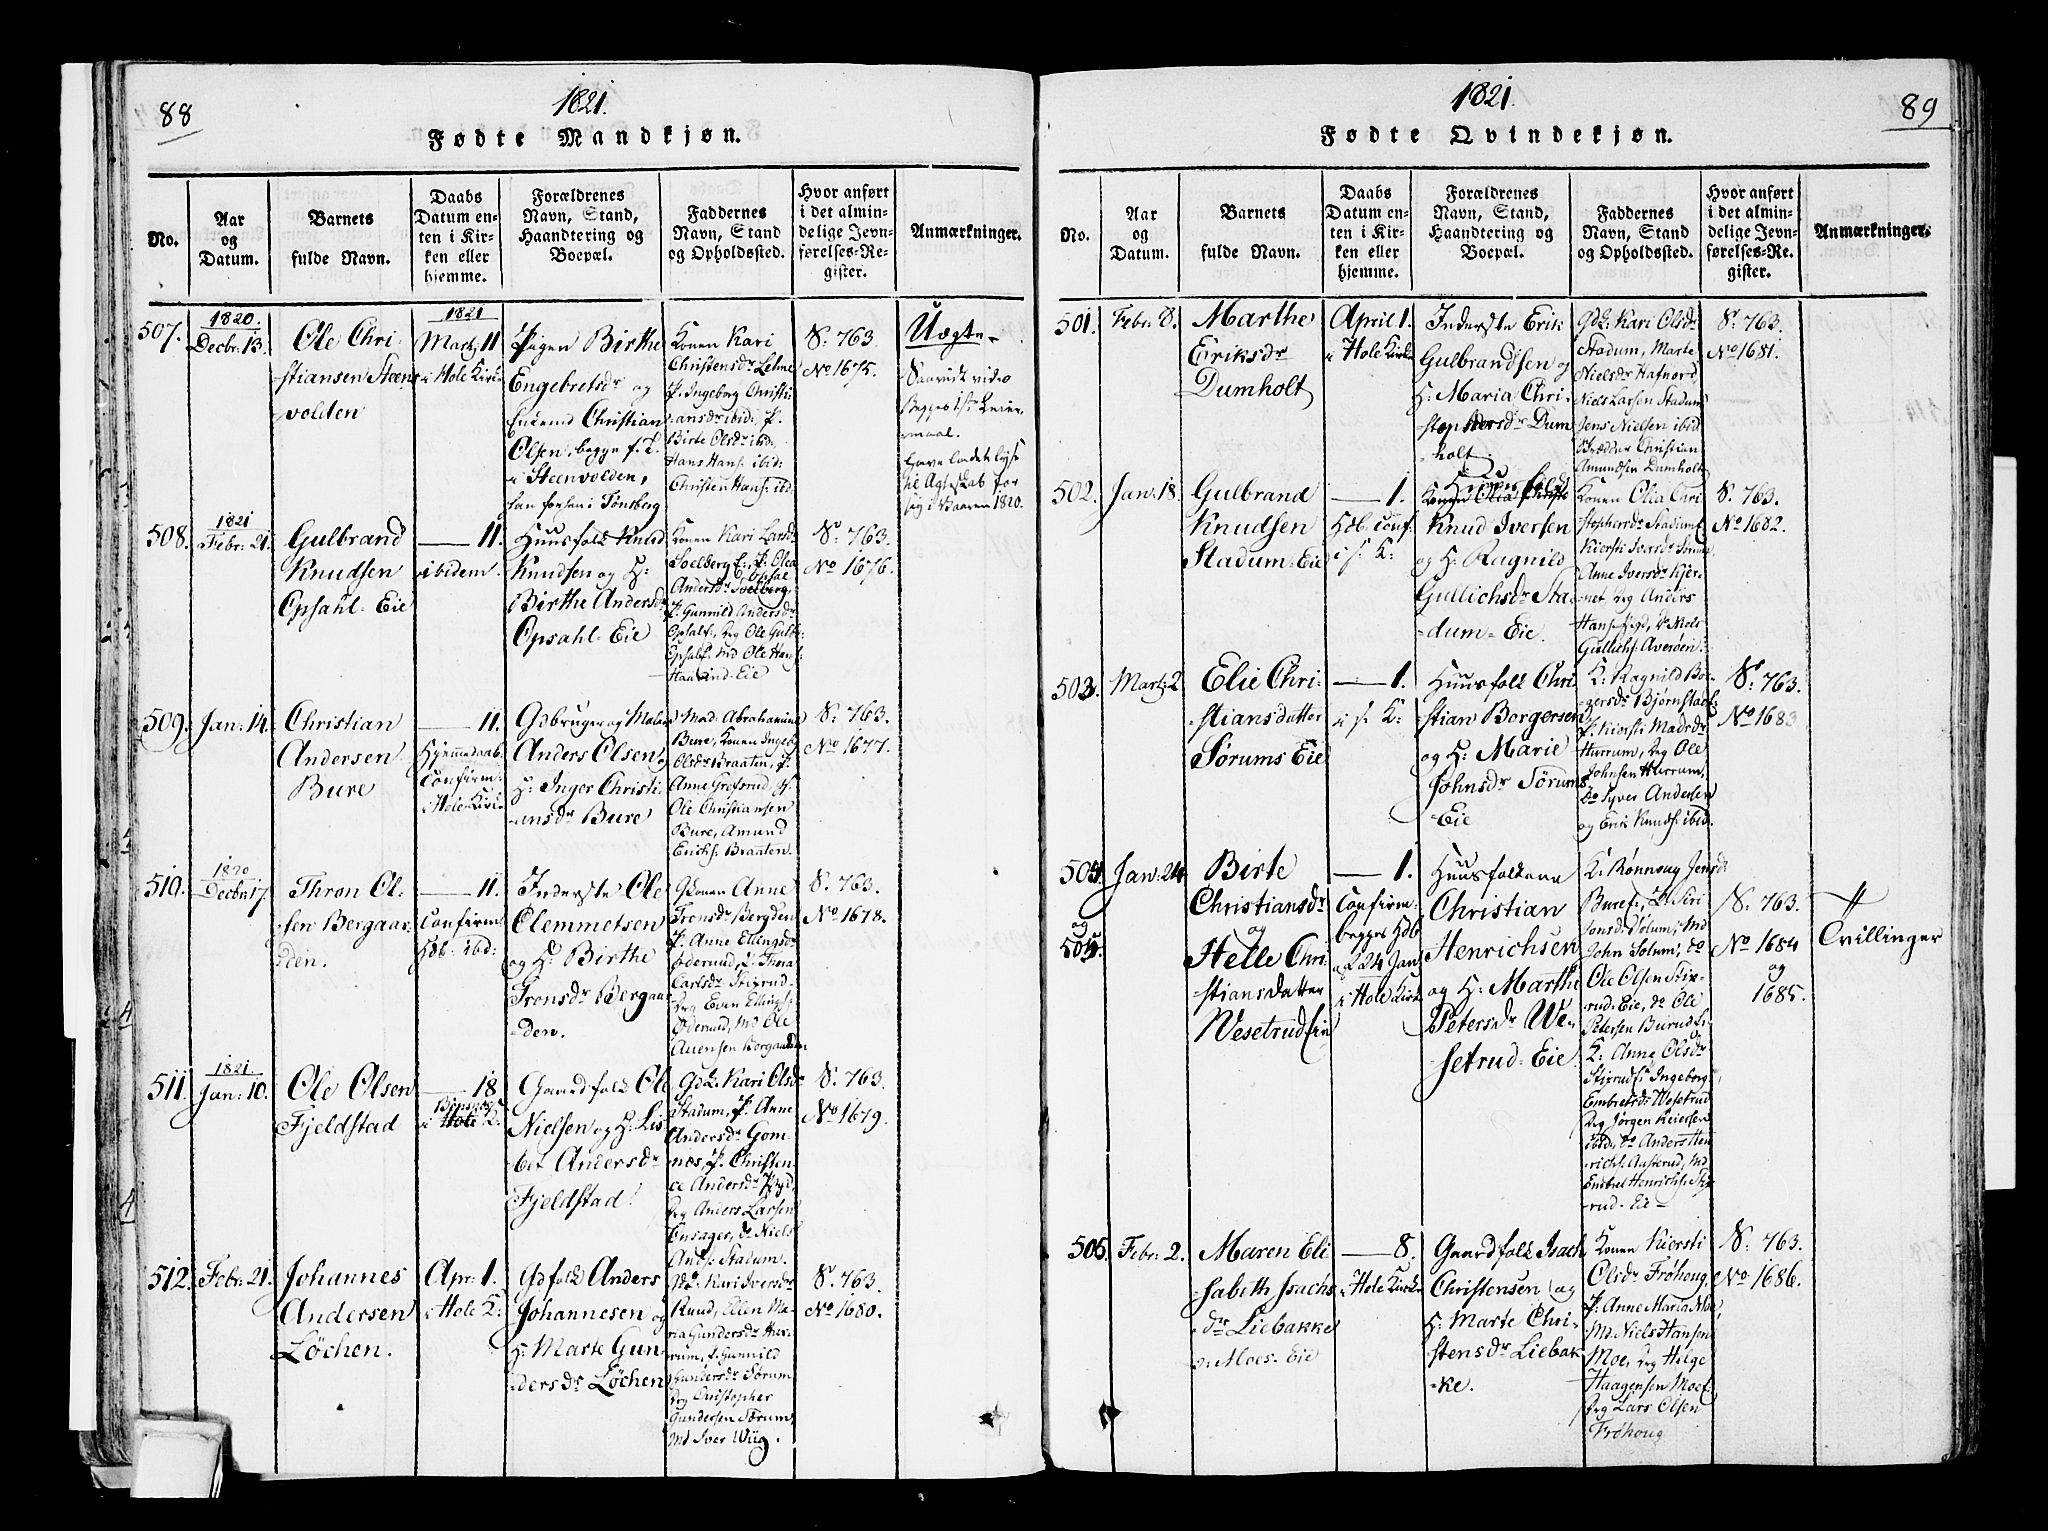 88
1821.
Fødte Mandkjøn.
No.
Aar
og
Datum.
Barnets
fulde Navn.
Daabs
Datum en-
ten i Kir-
ken eller
hjemme.
Forældrenes
Navn, Stand,
Haandtering og
Boepæl.
Faddernes
Navn, Stand
og Opholdssted.
Hvor anført
i det almin-
delige Jevn-
førelses-Re-
gister.
Anmærkninger.
507.
1820.
Decbr: 13.
Ole Chri-
stiansen Steens-
volden
1821
Marti 11
i Hole Kirke
Pigen Birthe
Engebretsdr og
Christian
Olsen, begge f. T.
i Steenvolden,
han for hen i Tønsberg
Konen Kari
Christensdr Lehne
P. Ingeborg Christi
ansdr ibid: P.
Birte Olsdr ibid:
Hans Hans: ibid:
Christen Hans: ibid.
S: 763
No 1675.
Uægte.
Saavidt vides
Begges 1ste Leier-
maal.
Have ladet lyse
til Ægteskab for
sig i Vaaren 1820.
508.
1821
Febr: 21.
Gulbrand
Knudsen
Opsahl-Eie
— 11.
ibidem.
Huusfolk Knud
Knudsen og H:
Birthe Andersdr
Opsahl-Eie
Konen Kari Larsdr
Soelberg E:, P. Olea
Andersdr Soelberg,
P. Gunnild Andersdr
Opsals:, Ung Ole Gulb:
Opsals: Md Ole Hans:
Haarind-Eie
S: 763.
No 1676.
509.
Jan: 14.
Christian
Andersen
Bure
— 11.
Hjemmedaab.
Confirm:
i Hole-Kirke
Gdbruger og Maler
Anders Olsen og
H: Inger Christi
ansdr Bure
Mad: Abrahamine
Bure, Konen Ingeb:
Olsdr Braaten, P.
Anne Grøfsrud
Ole Christiansen
Bure, Amund
Erichs: Braaten.
S: 763
No 1677.
510.
1820
Decbr: 17.
Thron Ol-
sen Bergaar-
den.
— 11.
Confirm:
Hdb. ibid:
Inderste Ole
Clemmetsen
og H: Birthe
Tronsdr Bergaar
den.
Gkonen Anne
Tronsdr Bergden
P. Anne Ellingsdr
Oderud, P. Thora
Carlsdr Stixrud
Ung Even Ellings:
Oderud, Md Ole
Auensen Borgaarden
S: 763.
No 1678.
511.
1821
Jan: 10.
Ole Olsen
Fjeldstad
— 18
i Hole K.
Gaardfolk Ole
Nielsen og H: Lis
bet Andersdr
Fjeldstad
Gdk: Kari Olsdr
Stadum, P. Anne
Andersdr Gom-
næs, P. Christen-
ce Andersdr Ryd,
Ung Anders Larsen
Onsager, do Niels
And: Stadum.
S: 763.
No 1679.
512.
Febr: 21.
Johannes
Andersen
Løchen.
Apr: 1.
i Hole K:
Gdfolk Anders
Johannesen og
H: Marte Gun-
dersdr Løchen
Gdk: Kari Iversdr
Ruud, Ellen Ma-
ria Gundersdr Hur-
rum, P. Gunnild
Gundersdr Sørum
Ung Christopher
Gundersen Sørum,
Md Iver Wiig.
S: 763.
No 1680.
89
1821.
Fødte Qvindekjøn.
No.
Aar
og
Datum.
Barnets
fulde Navn.
Daabs
Datum en-
ten i Kir-
ken eller
hjemme.
Forældrenes
Navn, Stand,
Haandtering og
Boepæl.
Faddernes
Navn, Stand
og Opholdssted.
Hvor anført
i det almin-
delige Jevn-
førelses-Re-
gister.
Anmærkninger.
501.
Febr. 8.
Marthe
Eriksdr
Dumholt
April 1.
i Hole Kirke
Inderste Erik
Gulbrandsen og
H: Maria Chri-
stophersdr Dum
holt.
Gdk: Kari Olsdr
Stadum, Marte
Nielsdr Hafnord
Niels Larsen Stadum
Jens Nielsen ibid
Christian
Amundsen Dumholt
S: 763.
No 1681.
502.
Jan: 18.
Gulbrand
Knudsen
Stadum-Eie
— 1.
Hdb. conf.
i s. K:
Huusfolk
Knud Iversen
og H: Ragnild
Gullichsdr Sta-
dum-Eie.
Konen Olia Chri
stophersdr Stadum
Kiersti Iversdr
Anne Iversdr Kjer-
net, Ung Anders
do Niels
Gullichs: Averøen
S: 763.
No 1682.
503.
Marti 2
Elie Chri-
stiansdatter
Sørums Eie
— 1.
i s. K:
Huusfolk Chri
stian Borgersen
og H: Marie
Johnsdr Sørums
Eie
K: Ragnild Bor-
gersdr Bjørnstad
P. Kiersti Madsdr
Hurrum, Ung Ole
Johnsen Hurrum,
do Syver Andersen
og Erik Knuds: ibid.
S: 763.
No 1683
504
og
505.
Jan: 24
Birte
Christiansdr
og
Helle Chri
stiansdatter
Wesetrud Eie
— 1.
Confirm:
begges Hdb
24 Jan:
i Hole Kirke
Huusfolkene
Christian
Henrichsen
og H: Marthe
Petersdr We-
setrud-Eie
K: Rønnoug Jensdr
Bures:, P. Siri
Jonsd. Solum, Md
John Solum, do
Ole Olsen Stix-
rud-Eie, do Ole
Petersen Biirud Ei-
K: Anne Olsdr
Stixruds: Ingeborg
Embretsdr Wesetrud
Ung Jørgen Reiersen
ibid:, do Anders Hen
richs: Aasterud, Md
Embret Henrichs: Stix
rud-Eie
S: 763.
No 1684
og
1685.
Tvillinger
505.
Febr: 2.
Maren Eli
sabeth Isachs
dr Liebakke
Moes-Eie
— 8.
i Hole Kirke
Gaardfolk Isach
Christensen og
H: Marte Chri-
stensdr Liebak
ke.
Konen Kiersti
Olsdr Frøhoug,
P. Anne Maria Moe,
Md Niels Hansen
Moe, Ung Helge
Haagensen Moe
Ung Lars Olsen
Frøhoug
S: 763.
No 1686.